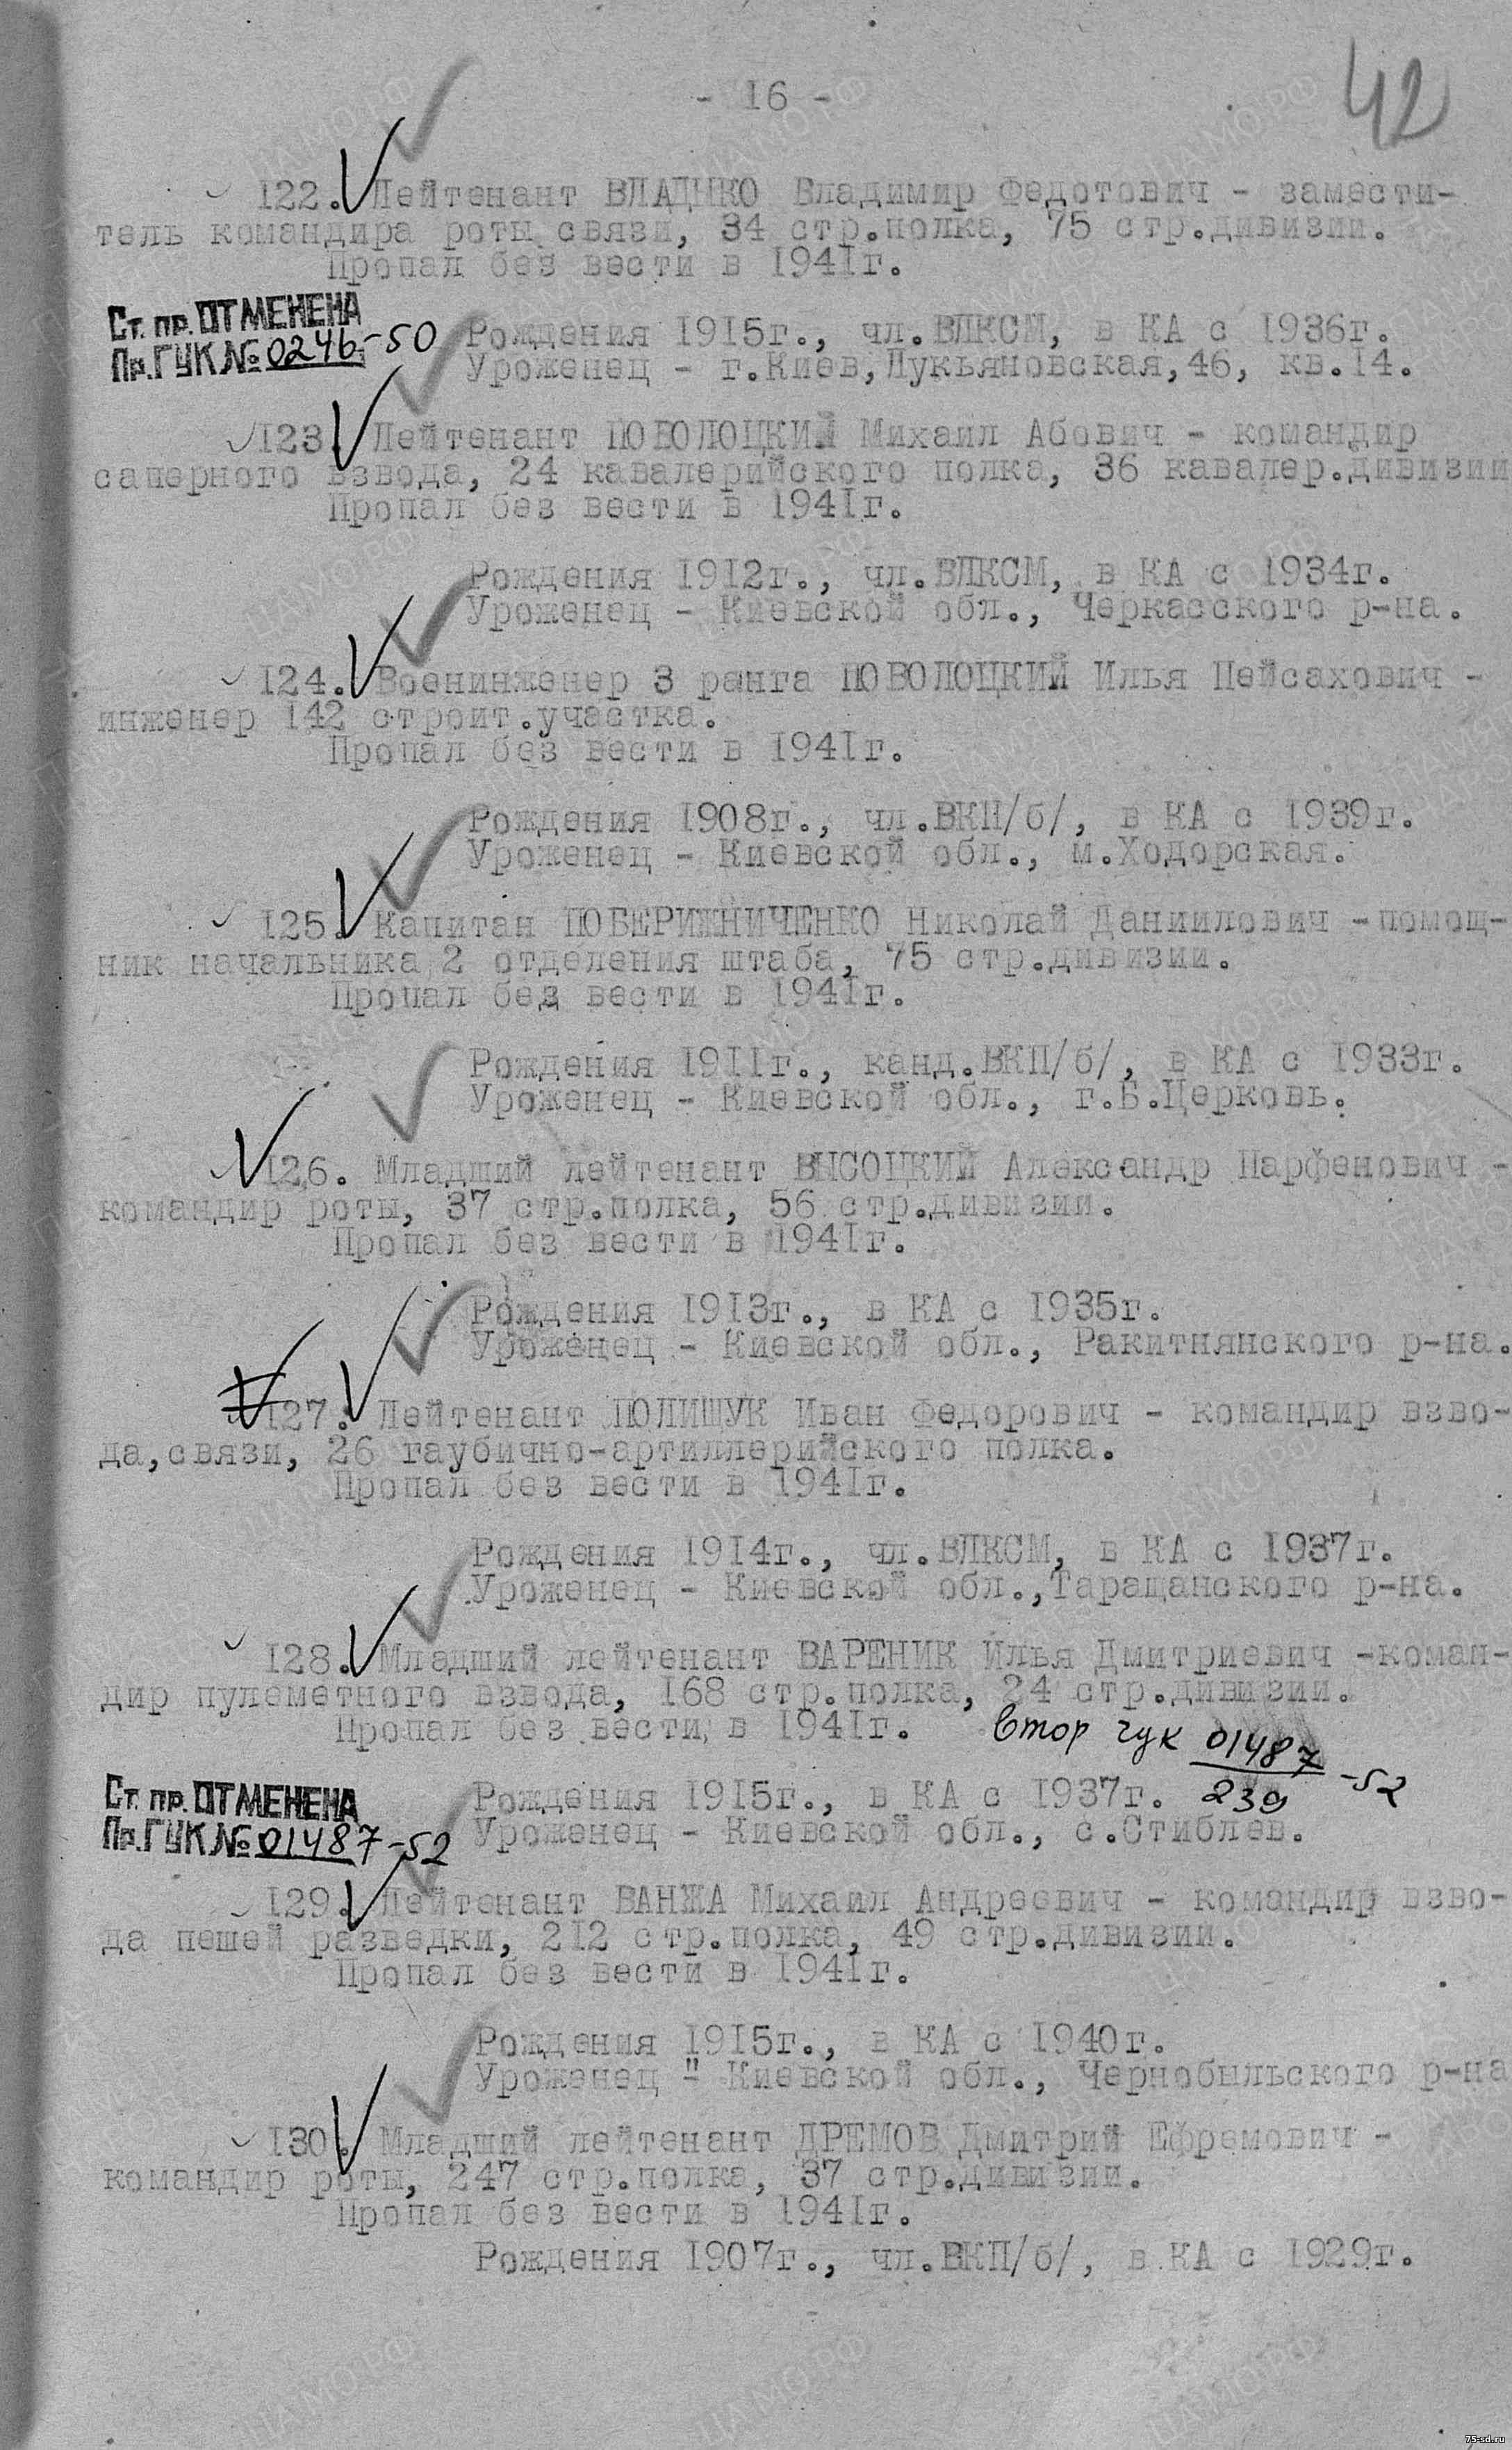 - 16 -
42
122. Лейтенант ВЛАДЫКО Владимир Федотович - замести-
тель командира роты связи, 34 стр.полка, 75 стр.дивизии.
Пропал без вести в 1941г.
Ст. пр. ОТМЕНЕНА
Пр.ГУК № 0246-50
Рождения 1915г., чл.ВЛКСМ, в КА с 1936г.
Уроженец - г.Киев,Лукьяновская,46, кв.14.
123. Лейтенант ПОВОЛОЦКИЙ Михаил Абович - командир
саперного взвода, 24 кавалерийского полка, 36 кавалер.дивизии
Пропал без вести в 1941г.
Рождения 1912г., чл.ВЛКСМ, в КА с 1934г.
Уроженец - Киевской обл., Черкасского р-на.
124. Военинженер 3 ранга ПОВОЛОЦКИЙ Илья Пейсахович -
инженер 142 строит.участка.
Пропал без вести в 1941г.
Рождения 1908г., чл.ВКП/б/, в КА с 1939г.
Уроженец - Киевской обл., м.Ходорская.
125. Капитан ПОБЕРИЖНИЧЕНКО Николай Даниилович -помощ-
ник начальника 2 отделения штаба, 75 стр.дивизии.
Пропал без вести в 1941г.
Рождения 1911г., канд.ВКП/б/, в КА с 1933г.
Уроженец - Киевской обл., г.Б.Церковь.
126. Младший лейтенант ВЫСОЦКИЙ Александр Парфенович -
командир роты, 37 стр.полка, 56 стр.дивизии.
Пропал без вести в 1941г.
Рождения 1913г., в КА с 1935г.
Уроженец - Киевской обл., Ракитнянского р-на.
127. Лейтенант ПОЛИЩУК Иван Федорович - командир взво-
да,связи, 26 гаубично-артиллерийского полка.
Пропал без вести в 1941г.
Рождения 1914г., чл.ВЛКСМ, в КА с 1937г.
Уроженец - Киевской обл.,Таращанского р-на.
128. Младший лейтенант ВАРЕНИК Илья Дмитриевич -коман-
дир пулеметного взвода, 168 стр.полка, 24 стр.дивизии.
Пропал без вести в 1941г. Втор гук 01487/239-52
Ст. пр. ОТМЕНЕНА
Пр.ГУК № 01487-52
Рождения 1915г., в КА с 1937г.
Уроженец - Киевской обл., с.Стиблев.
129. Лейтенант ВАНЖА Михаил Андреевич - командир взво-
да пешей разведки, 212 стр.полка, 49 стр.дивизии.
Пропал без вести в 1941г.
Рождения 1915г., в КА с 1940г.
Уроженец " Киевской обл., Чернобыльского р-на
130. Младший лейтенант ДРЕМОВ Дмитрий Ефремович -
командир роты, 247 стр.полка, 37 стр.дивизии.
Пропал без вести в 1941г.
Рождения 1907г., чл.ВКП/б/, в КА с 1929г.
75-sd.ru